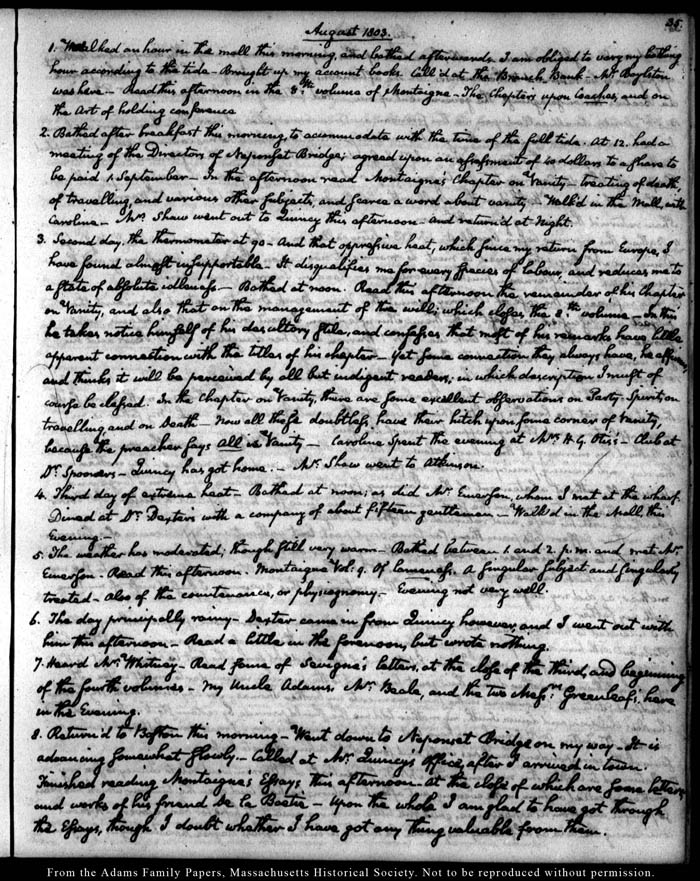 35.
August 1803.
1. Walked an hour in the mall this morning, and bathed afterwards. I am obliged to vary my bathing
hour according to the tide - Brought up my account books. Call'd at the Branch Bank - Mr. Boylston
was here - Read this afternoon in the 8th. volume of Montaigne - The Chapters upon Coaches, and on
the Art of holding conference
2. Bathed after breakfast this morning, to accommodate with the time of the full tide. At 12. had a
meeting of the Directors of Neponset Bridge; agreed upon an assessment of 10 dollars to a share to
be paid 1. September - In the afternoon read Montaigne's Chapter on Vanity - treating of death,
of travelling, and various other subjects, and scarce a word about vanity. - Walk'd in the Mall, with
Caroline - Mrs. Shaw went out to Quincy this afternoon - and return'd at Night.
3. Second day, the thermometer at 90 - And that oppressive heat, which since my return from Europe, I
have found almost insupportable. It disqualifies me for every species of labour, and reduces me to
a state of absolute idleness. - Bathed at noon. Read this afternoon the remainder of his Chapter
on Vanity, and also that on the management of the will; which closes the 8.th volume - In this
he takes notice himself of his desultory stile, and confesses that most of his remarks have little
apparent connection with the titles of his chapter - Yet some connection they always have, he affirms,
and thinks it will be perceived by all but indigent readers; in which description I must of
course be classed. In the Chapter on Vanity, there are some excellent observations on Party-Spirit, on
travelling, and on Death - Now all these doubtless, have their hitch upon some corner of Vanity,
because the preacher says All is Vanity - Caroline spent the evening at Mrs. H. G. Otis's - Club at
Dr. Spooner's - Quincy has got home. - Mr. Shaw went to Atkinson.
4. Third day of extreme heat - Bathed at noon; as did Mr. Emerson, whom I met at the wharf.
Dined at Dr. Dexter's with a company of about fifteen gentlemen - Walk'd in the Mall, this
Evening. -
5. The weather has moderated; though still very warm - Bathed between 1. and 2. p.m. and met Mr.
Emerson. Read this afternoon. Montaigne Vol: 9. Of lameness. A singular subject and singularly
treated - also of the countenance, or physiognomy. - Evening not very well.
6. The day principally rainy - Dexter came in from Quincy however, and I went out with
him this afternoon - Read a little in the forenoon, but wrote nothing.
7. Heard Mr. Whitney - Read some of Sevigné's letters, at the close of the third, and beginning
of the fourth volumes - My Uncle Adams, Mr. Beale, and the two Messrs. Greenleaf's, here
in the Evening.
8. Return'd to Boston this morning - Went down to Neponset Bridge on my way - It is
advancing somewhat slowly. - Called at Mr. Quincy's Office, after I arrived in town.
Finished reading Montaigne's Essays, this afternoon. At the close of which are some letters,
and works of his friend De La Boetie - Upon the whole I am glad to have got through
the Essays, though I doubt whether I have got any thing valuable from them.
From the Adams Family Papers, Massachusetts Historical Society. Not to be reproduced without permission.